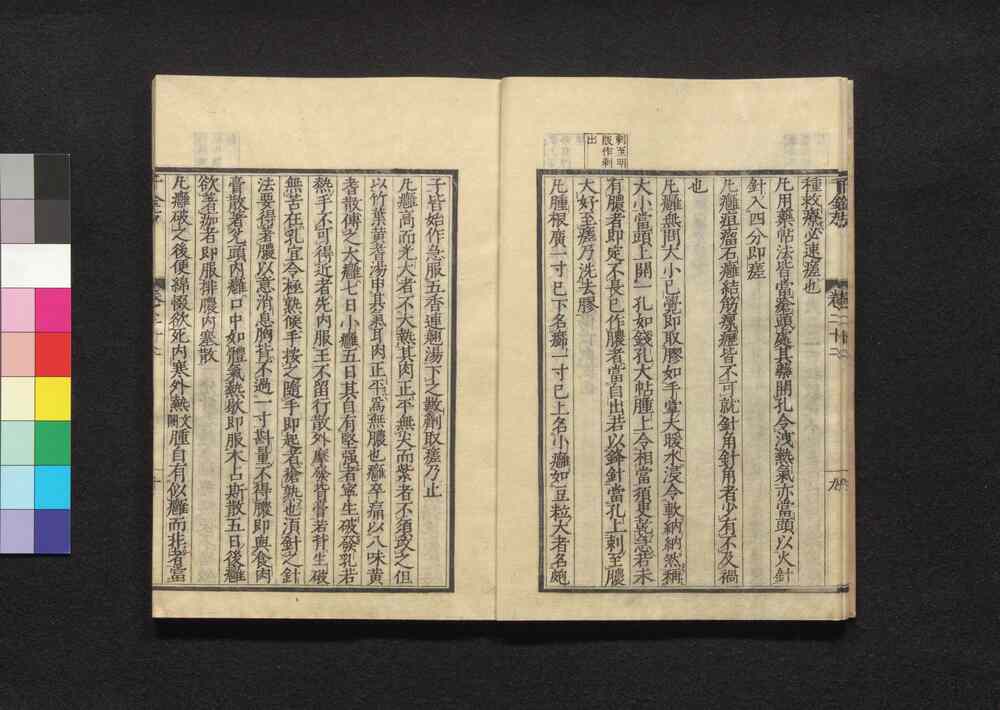 千金方
卷二十二
種救療必速瘥也
凡用藥帖法皆當瘡頭處其藥開孔令洩熱氣亦當頭以火針
針入四分即瘥
凡癰疽瘤石癰結筋瘰癧皆不可就針角針角者少有不及禍
也
凡癰無問大小已覺即取膠如手掌大暖水浸令軟納納然稱
大小當頭上開一孔如錢孔大帖腫上令相當須更乾急若未
有膿者即定不長已作膿者當自出若以鋒針當孔上刺至膿
大好至瘥乃洗去膠
刺至明
版作刺
出
凡腫根廣一寸已下名癤一寸已上名小癰如豆粒大者名皰
子皆始作急服五香連翹湯下之數劑取瘥乃止
凡癰高而光大者不大熱其肉正平無尖而紫者不須攻之但
以竹葉黄耆湯申其氣耳肉正平爲無膿也癰卒痛以八味黄
耆散傅之大癰七日小癰五日其自有堅强者寧生破發乳若
熱手不可得近者先内服王不留行散外摩發背膏若背生破
無苦在乳宜令極熱候手按之隨手即起者瘡熱也須針之針
法要得著膿以意消息胸背不過一寸斟量不得膿即與食肉
膏散著兊頭内癰口中如體氣熱歇即服木占斯散五日後癰
欲著痂者即服排膿内塞散
凡癰破之後便綿惙欲死内寒外熱文闕腫自有似癰而非者當